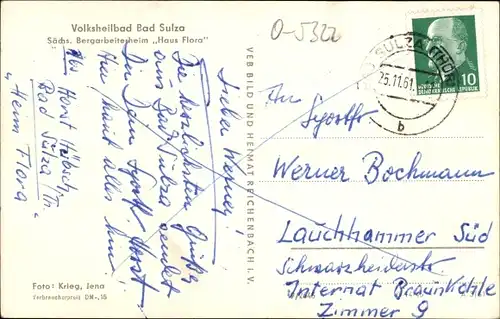 Volksheilbad Bad Sulza
Sächs. Bergarbeiterheim „Haus Flora"
O-5322
Abs. Horst Hübsch,
Bad Sulza/Th.
„Heim Flora"
Lieber Werner!
Die herzlichsten Grüße
aus Bad Sulza sendet
Dir Dein Sportfr. Horst.
VEB BILD UND HEIMAT REICHENBACH I. V.
BAD SULZA (THÜR)
25.11.61
b
10
DEUTSCHE DEMOKRATISCHE REPUBLIK
An
Sportfr.
Werner Bochmann
Lauchhammer Süd
Schwarzheiderstr.
Internat Braunkohle
Zimmer 9
Foto: Krieg, Jena
Verbraucherpreis DM -,15